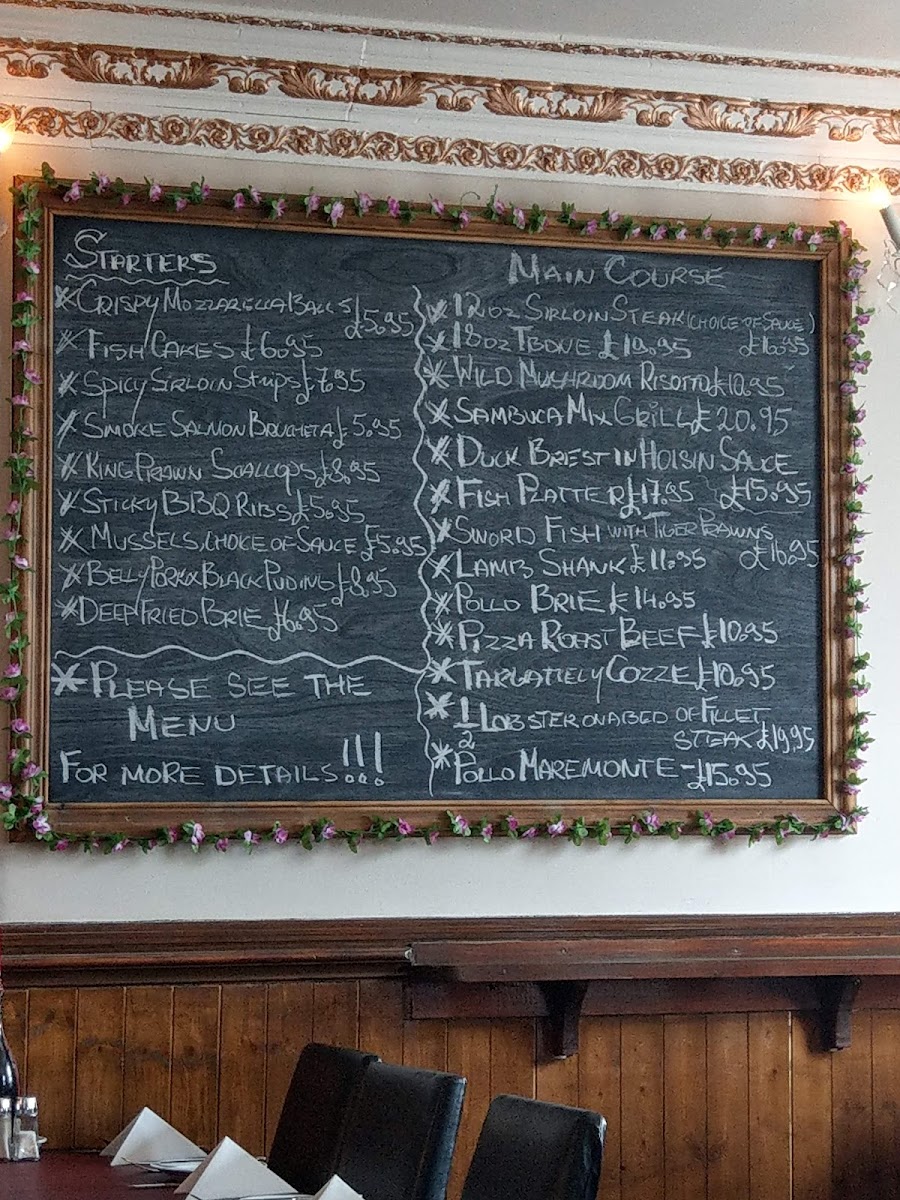 STARTERS
* CRISPY MOZZARELLA BALLS £5.95
* FISH CAKES £6.95
* SPICY SIRLOIN STRIPS £7.95
* SMOKE SALMON BRUCHETA £5.95
* KING PRAWN SCALLOPS £8.95
* STICKY BBQ RIBS £5.95
* MUSSELS, CHOICE OF SAUCE £5.95
* BELLY PORK & BLACK PUDING £8.95
* DEEP FRIED BRIE £6.95
* PLEASE SEE THE
MENU
FOR MORE DETAILS!!!
MAIN COURSE
* 12oz SIRLOIN STEAK (CHOICE OF SAUCE)
£16.95
* 18oz TBONE £19.95
* WILD MUSHROOM RISOTTO £10.95
* SAMBUCA MIX GRILL £20.95
* DUCK BRIEST IN HOISIN SAUCE
£15.95
* FISH PLATTER £17.95
* SWORD FISH WITH TIGER PRAWNS
£16.95
* LAMB SHANK £11.95
* POLLO BRIE £14.95
* PIZZA ROAST BEEF £10.95
* TAGLIATTELY COZZE £10.95
* 1/2 LOBSTER ON A BED OF FILLET
STEAK £19.95
* POLLO MAREMONTE - £15.95